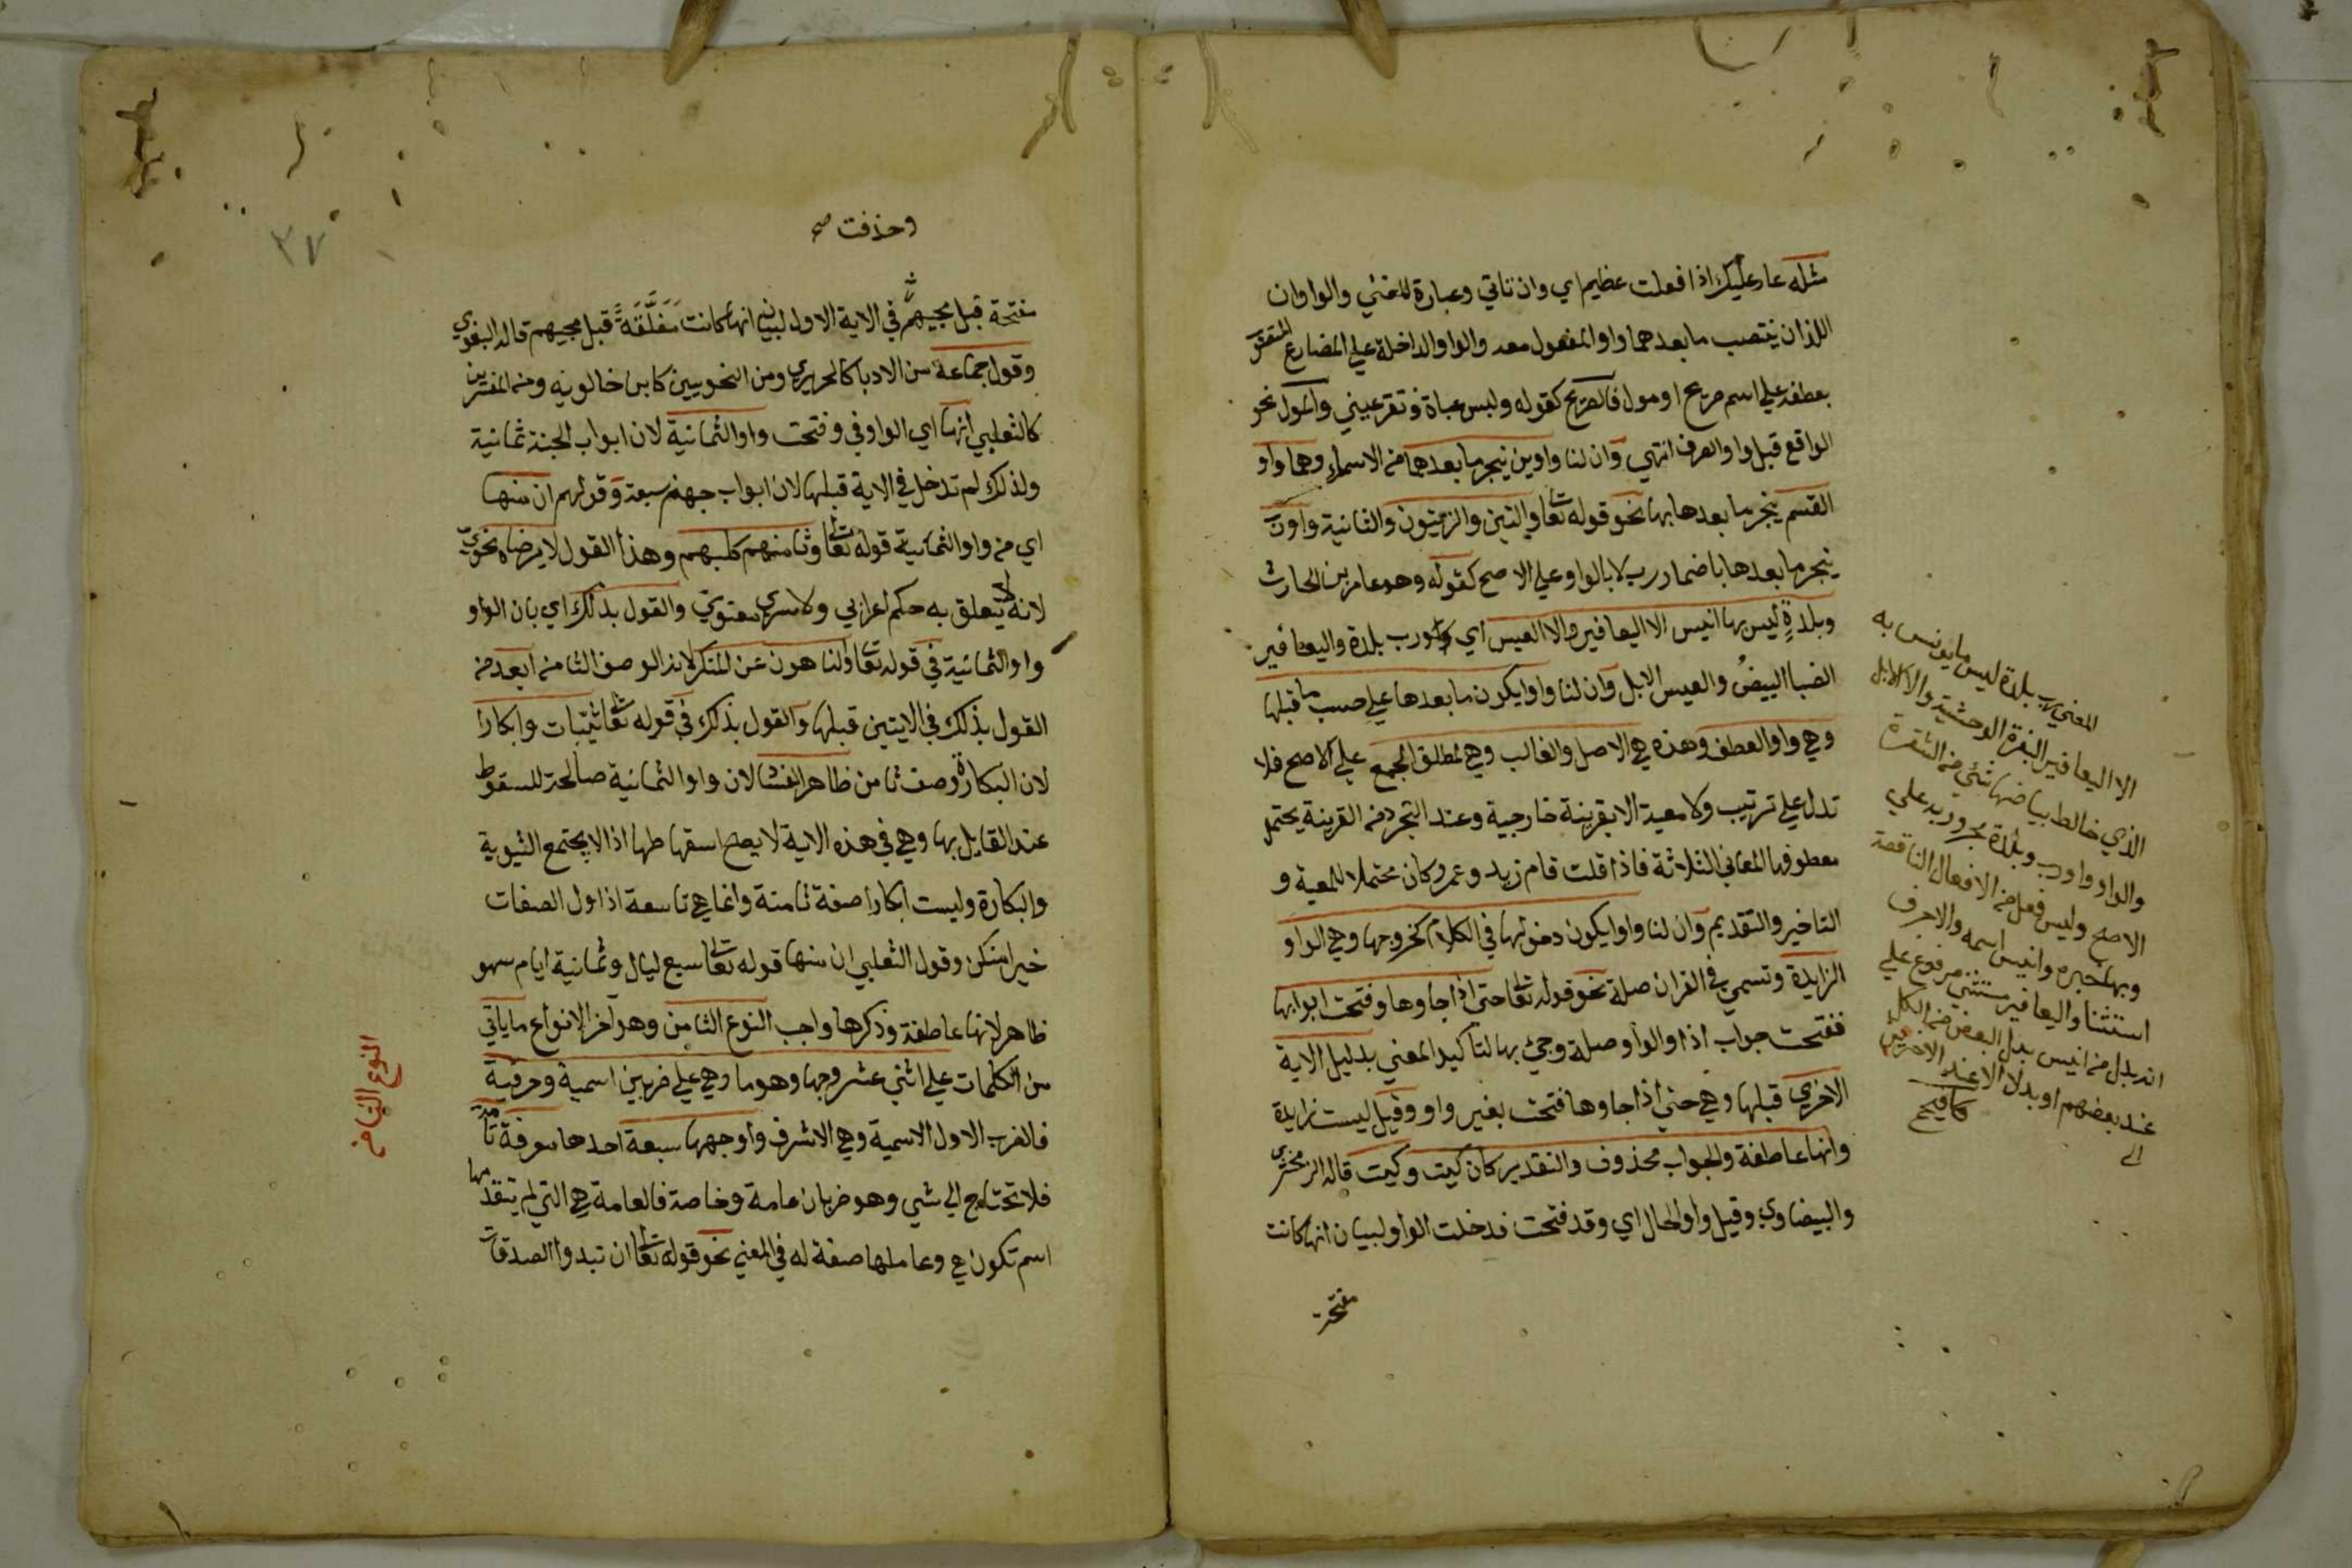 مثله عار عليك اذا فعلت عظيم اي وان تاتي وعبارة المغني والواوان
اللذان ينتصب ما بعدهما واو المفعول معه والواو الداخلة علي المضارع المنصوب
بعطفه علي اسم صريح او مول فالصريح كقوله ولبس عباة وتقر عيني والمول نحو
الواقع قبل واو الصرف انتهي وان لنا واوين ينجر ما بعدهما من الاسماء وهما واو
القسم ينجر ما بعدها بها نحو قوله تعا والتين والزيتون والثانية واو رب
ينجر ما بعدها باضمار رب لا بالواو علي الاصح كقوله وهو عامر بن الحارث
وبلدةٍ ليس بها انيس الا اليعافير والا العيس اي ورب بلدة واليعافير
الضبا البيضُ والعيس الابل وان لنا واوا يكون ما بعدها علي حسب ما قبلها
وهي واو العطف وهذه هي الاصل والغالب وهي لمطلق الجمع علي الاصح فلا
تدل علي ترتيب ولا معية الا بقرينة خارجية وعند التجرد من القرينة يحتمل
معطوفها المعاني الثلاثة فاذا قلت قام زيد وعمرو كان محتملا للمعية و
التاخير والتقديم وان لنا واوا يكون دخولها في الكلام كخروجها وهي الواو
الزايدة وتسمي في القران صلة نحو قوله تعا حتي اذا جاوها وفتحت ابوابها
ففتحت جواب اذا والواو صلة وجئ بها لتاكيد المعني بدليل الاية
الاخري قبلها وهي حتي اذا جاوها فتحت بغير واو وقيل ليست زايدة
وانها عاطفة والجواب محذوف والتقدير كان كيت وكيت قاله الزمخشري
والبيضاوي وقيل واو الحال اي وقد فتحت فدخلت الواو لبيان انها كانت
مفتحة
المعني رب بلدة ليس ما يونس به
الا اليعافير البقرة الوحشية والا الابل
الذي خالط بياضها شئ من الشقرة
والواو واو رب وبلدة مجرور به علي
الاصح وليس فعل من الافعال الناقصة
وبها خبره وانيس اسمه والا حرف
استثنا واليعافير مستثني مرفوع علي
انه بدل من انيس بدل البعض من الكل
عند بعضهم او بدل الا عند الاخرين
كافيجي
وحذفت صح
مفتحة قبل مجيهم في الاية الاول لبيان انها كانت مَغَلَّقَةً قبل مجيهم قاله البغوي
وقول جماعة من الادبا كالحريري ومن النحويين كابن خالويه ومن المفسرين
كالثعلبي انها اي الواو في وفتحت واو الثمانية لان ابواب الجنة ثمانية
ولذلك لم تدخل في الاية قبلها لان ابواب جهنم سبعة وقولهم ان منها
اي من واو الثمانية قوله تعا وثامنهم كلبهم وهذا القول لا يرضاه نحوي
لانه لا يتعلق به حكم اعرابي ولا سري معنوي والقول بذلك اي بان الواو
واو الثمانية في قوله تعا والناهون عن المنكر لانه الوصف الثامن ابعد من
القول بذلك في الايتين قبلها والقول بذلك في قوله تعا ثيّبات وابكارا
لان البكارة وصف ثامن ظاهر الفساد لان واو الثمانية صالحة للسقوط
عند القايل بها وهي في هذه الاية لا يصح اسقاطها اذ لا يجتمع الثيوبة
والبكارة وليست ابكارا صفة ثامنة وانما هي تاسعة اذ اول الصفات
خيرا منكن وقول الثعلبي ان منها قوله تعا سبع ليال وثمانية ايام سهو
ظاهر لانها عاطفة وذكرها واجب النوع الثامن وهو آخر الانواع ما ياتي
من الكلمات علي اثني عشر وجها وهو ما وهي علي ضربين اسمية وحرفية
فالضرب الاول الاسمية وهي الاشرف واوجهها سبعة احدها معرفة تامة
فلا تحتاج الي شي وهو ضربان عامة وخاصة فالعامة هي التي لم يتقدمها
اسم تكون هي وعاملها صفة له في المعني نحو قوله تعا ان تبدوا الصدقات
النوع الثامن
٣٧